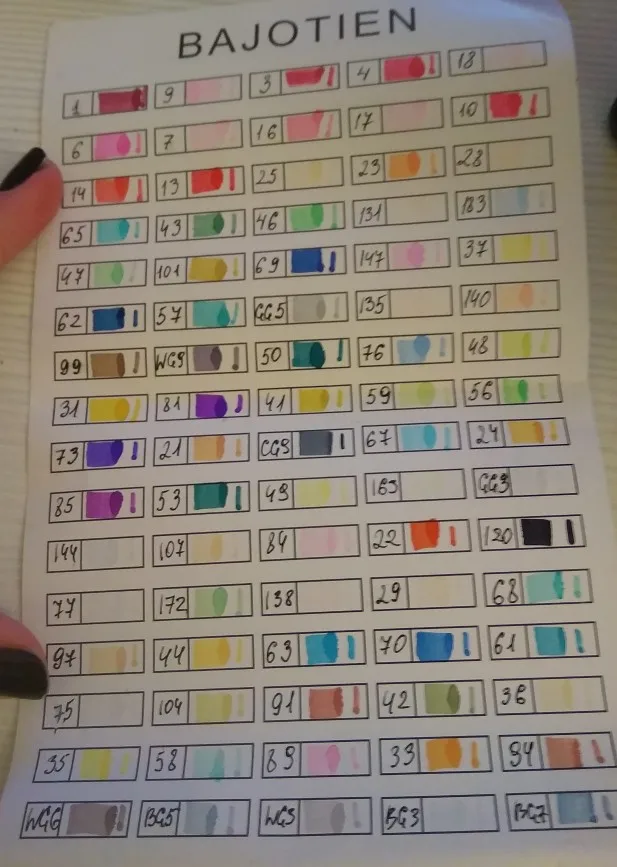 BAJOTIEN
1 9 3 4 18
6 7 16 17 10
14 13 25 23 28
65 43 46 131 183
47 101 69 147 37
62 57 GG5 135 140
99 WG9 50 76 48
31 81 41 59 56
73 21 CG9 67 24
85 53 49 169 GG3
144 107 84 22 120
77 172 138 29 68
97 44 63 70 61
75 104 91 42 36
35 58 89 33 94
WG6 BG5 WG3 BG3 BG7